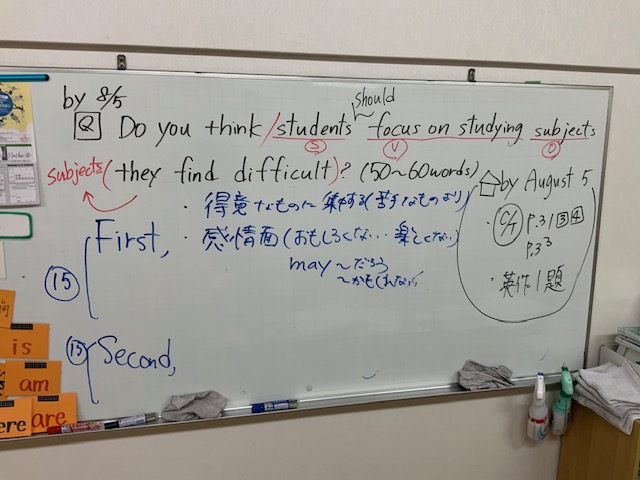 by 8/5
should
Q Do you think / students focus on studying subjects
S V O
subjects (they find difficult)? (50~60words)
・得意なものに集中する(苦手なものより)
First, ・感情面(おもしろくない…楽しくない)
may ~だろう
~かもしれない
15
15 Second,
by August 5
・C/T P.31 3 4
P.33
・英作1題
is
am
are